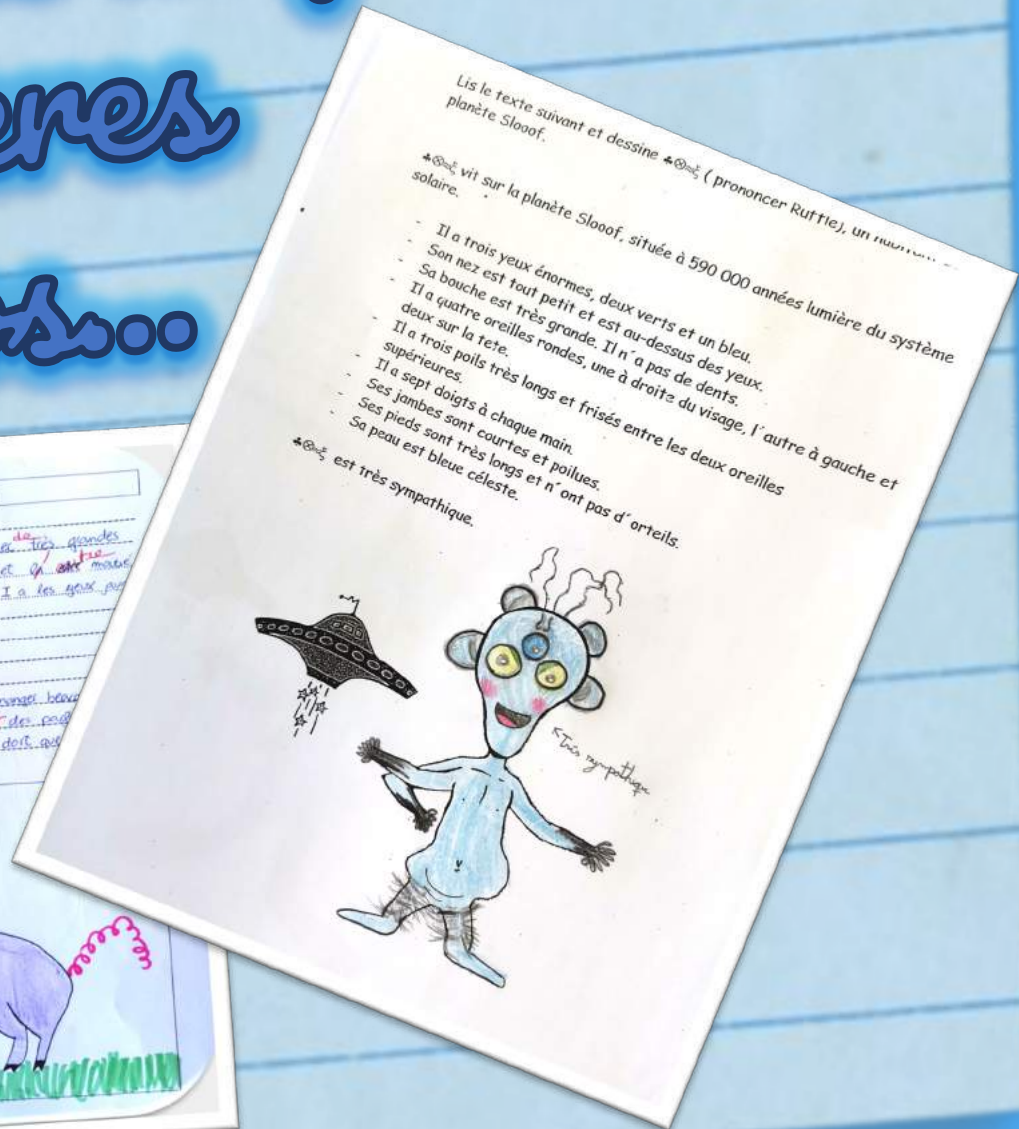 eres
Lis le texte suivant et dessine ♣⊗ ( prononcer Ruttle), un
planète Slooof.
♣⊗ vit sur la planète Slooof, située à 590 000 années lumière du système
solaire.
- Il a trois yeux énormes, deux verts et un bleu.
- Son nez est tout petit et est au-dessus des yeux.
- Sa bouche est très grande. Il n´a pas de dents.
- Il a quatre oreilles rondes, une à droite du visage, l´autre à gauche et
deux sur la tete.
- Il a trois poils très longs et frisés entre les deux oreilles
supérieures.
- Il a sept doigts à chaque main.
- Ses jambes sont courtes et poilues.
- Ses pieds sont très longs et n´ont pas d´orteils.
- Sa peau est bleue céleste.
♣⊗ est très sympathique.
Très sympathique
de très grandes
et
a les yeux
manger
des
dort que